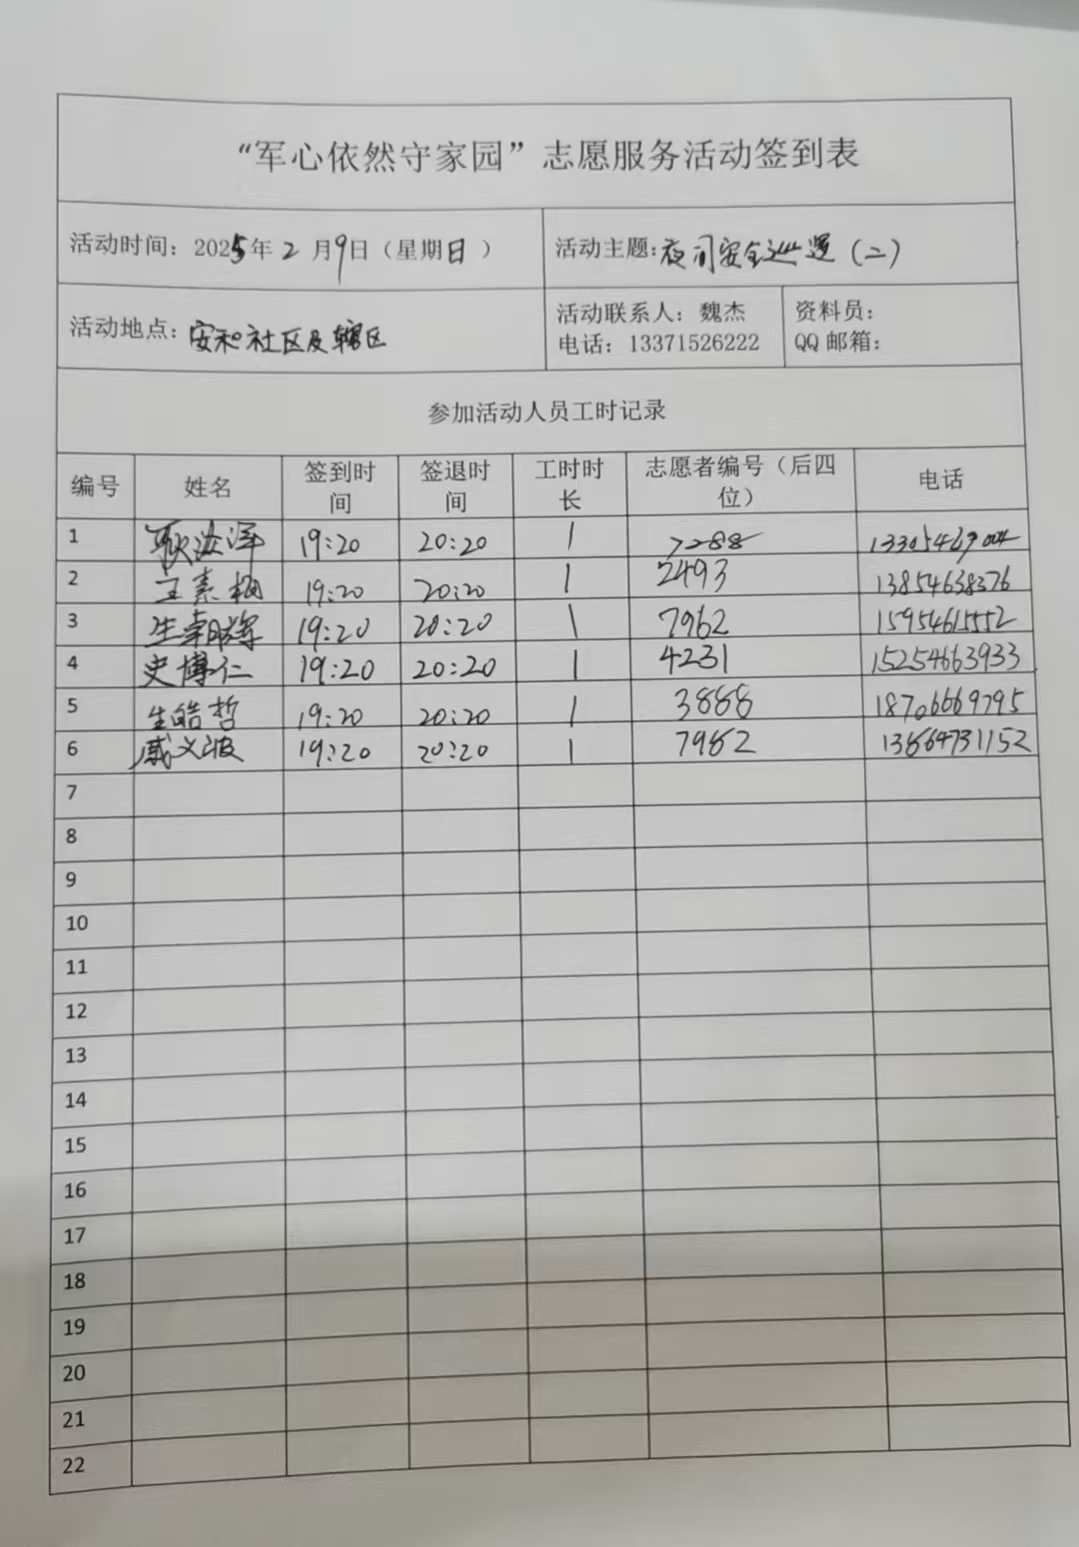 “军心依然守家园”志愿服务活动签到表
活动时间：2025年2月9日（星期日） 活动主题：夜间安全巡逻（二）
活动地点：安和社区及辖区 活动联系人：魏杰 资料员：
电话：13371526222 QQ邮箱：
参加活动人员工时记录
编号 姓名 签到时间 签退时间 工时时长 志愿者编号（后四位） 电话
1 耿 19:20 20:20 1 7288
2 王素梅 19:20 20:20 1 2493 13854638376
3 生朝辉 19:20 20:20 1 7962 15954615552
4 史博仁 19:20 20:20 1 4231 15254663933
5 生皓哲 19:20 20:20 1 3888 18706669795
6 戚义波 19:20 20:20 1 7982
7
8
9
10
11
12
13
14
15
16
17
18
19
20
21
22